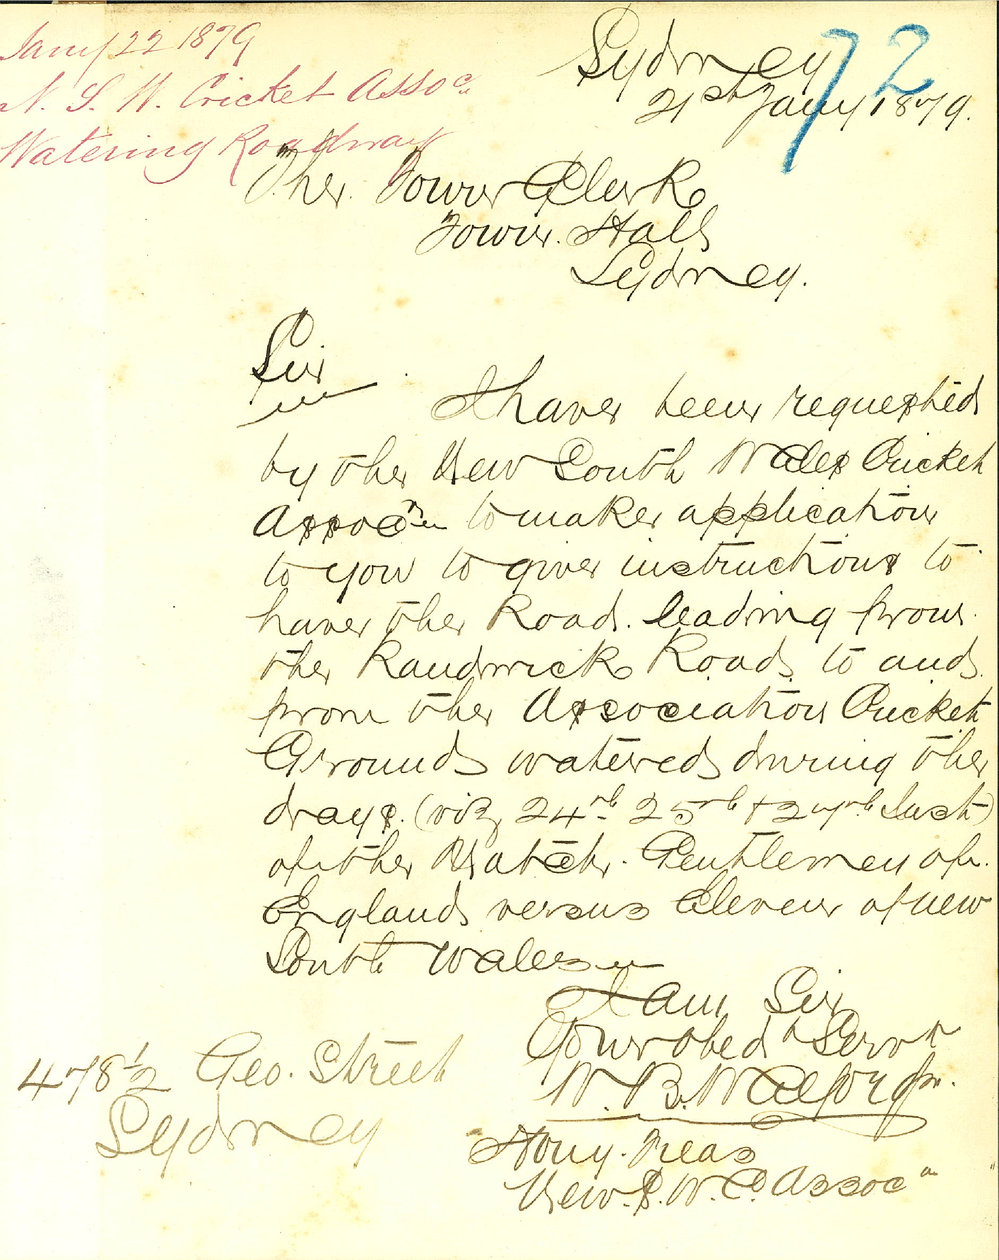 Jany 22 1879
N. S. W. Cricket Assocn
Watering Roadway
72
Sydney
21st Jany 1879.
The Town Clerk
Town Hall
Sydney.
Sir
I have been requested
by the New South Wales Cricket
Assocn to make application
to you to give instructions to
have the Road leading from
the Randwick Road to and
from the Association Cricket
Ground watered during the
days. (viz 24th 25th & 27th Inst)
of the Match. Gentlemen of
England versus Eleven of New
South Wales
I am Sir
Your obedt Servt
W. B. Walford
Hony. Treas
New. S. W. C. Assocn
478 1/2 Geo. Street
Sydney